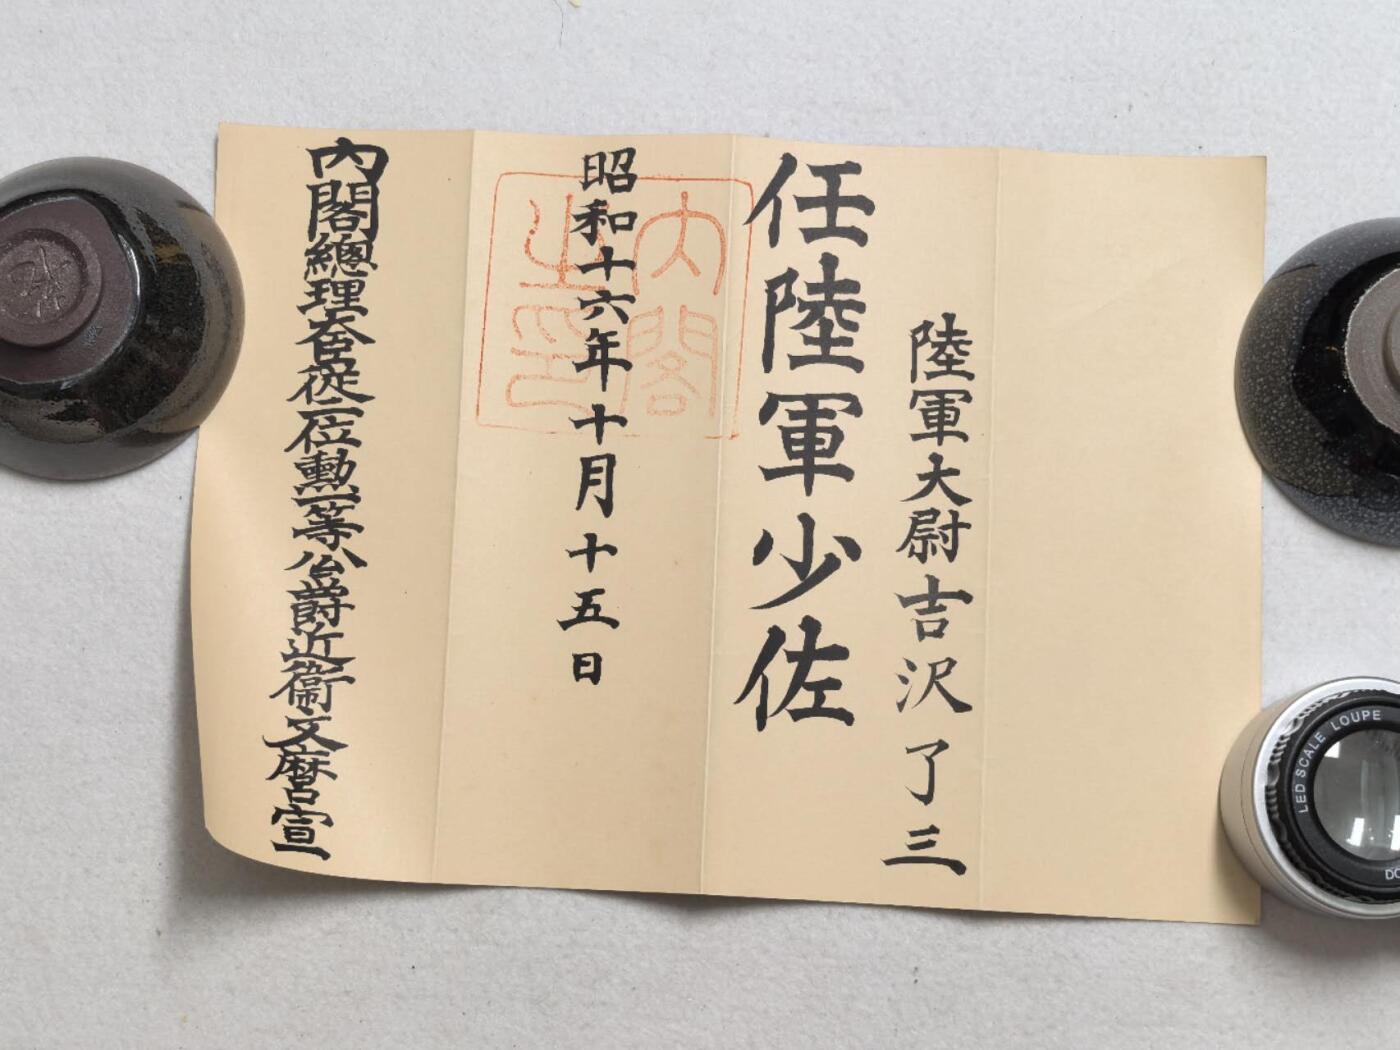 陸軍大尉吉沢了三
任陸軍少佐
昭和十六年十月十五日
內閣總理大臣從二位勳一等公爵近衞文麿宣
內閣之印
LED SCALE LOUPE